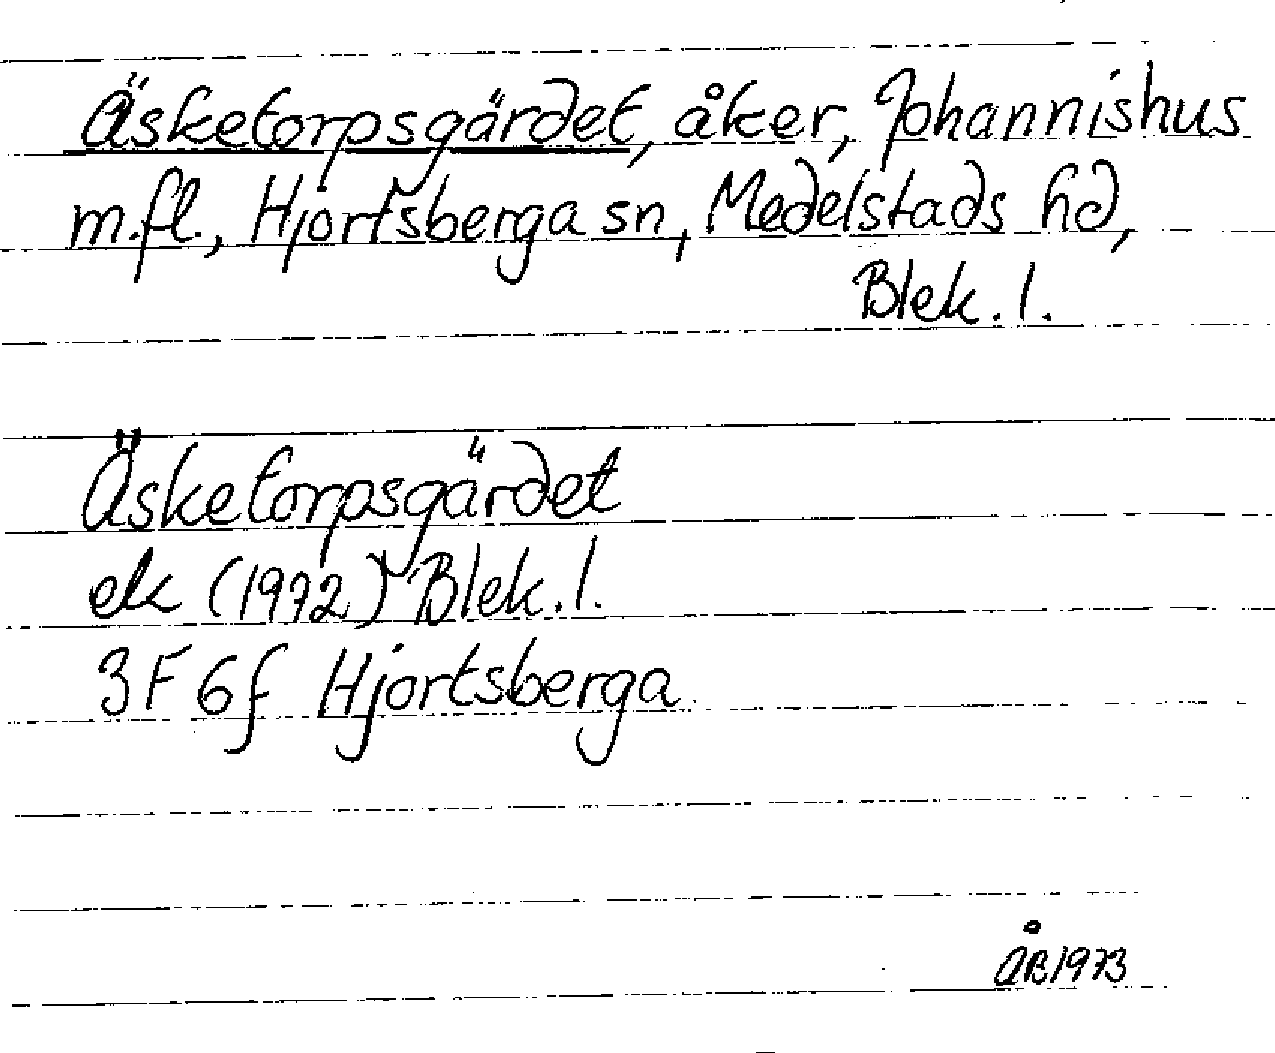 Äsketorpsgärdet, åker, Johannishus
m.fl., Hjortsberga sn, Medelstads hd,
Blek. l.
Äsketorpsgärdet
ek (1972) Blek. l.
3F 6f Hjortsberga
ÅB 1973